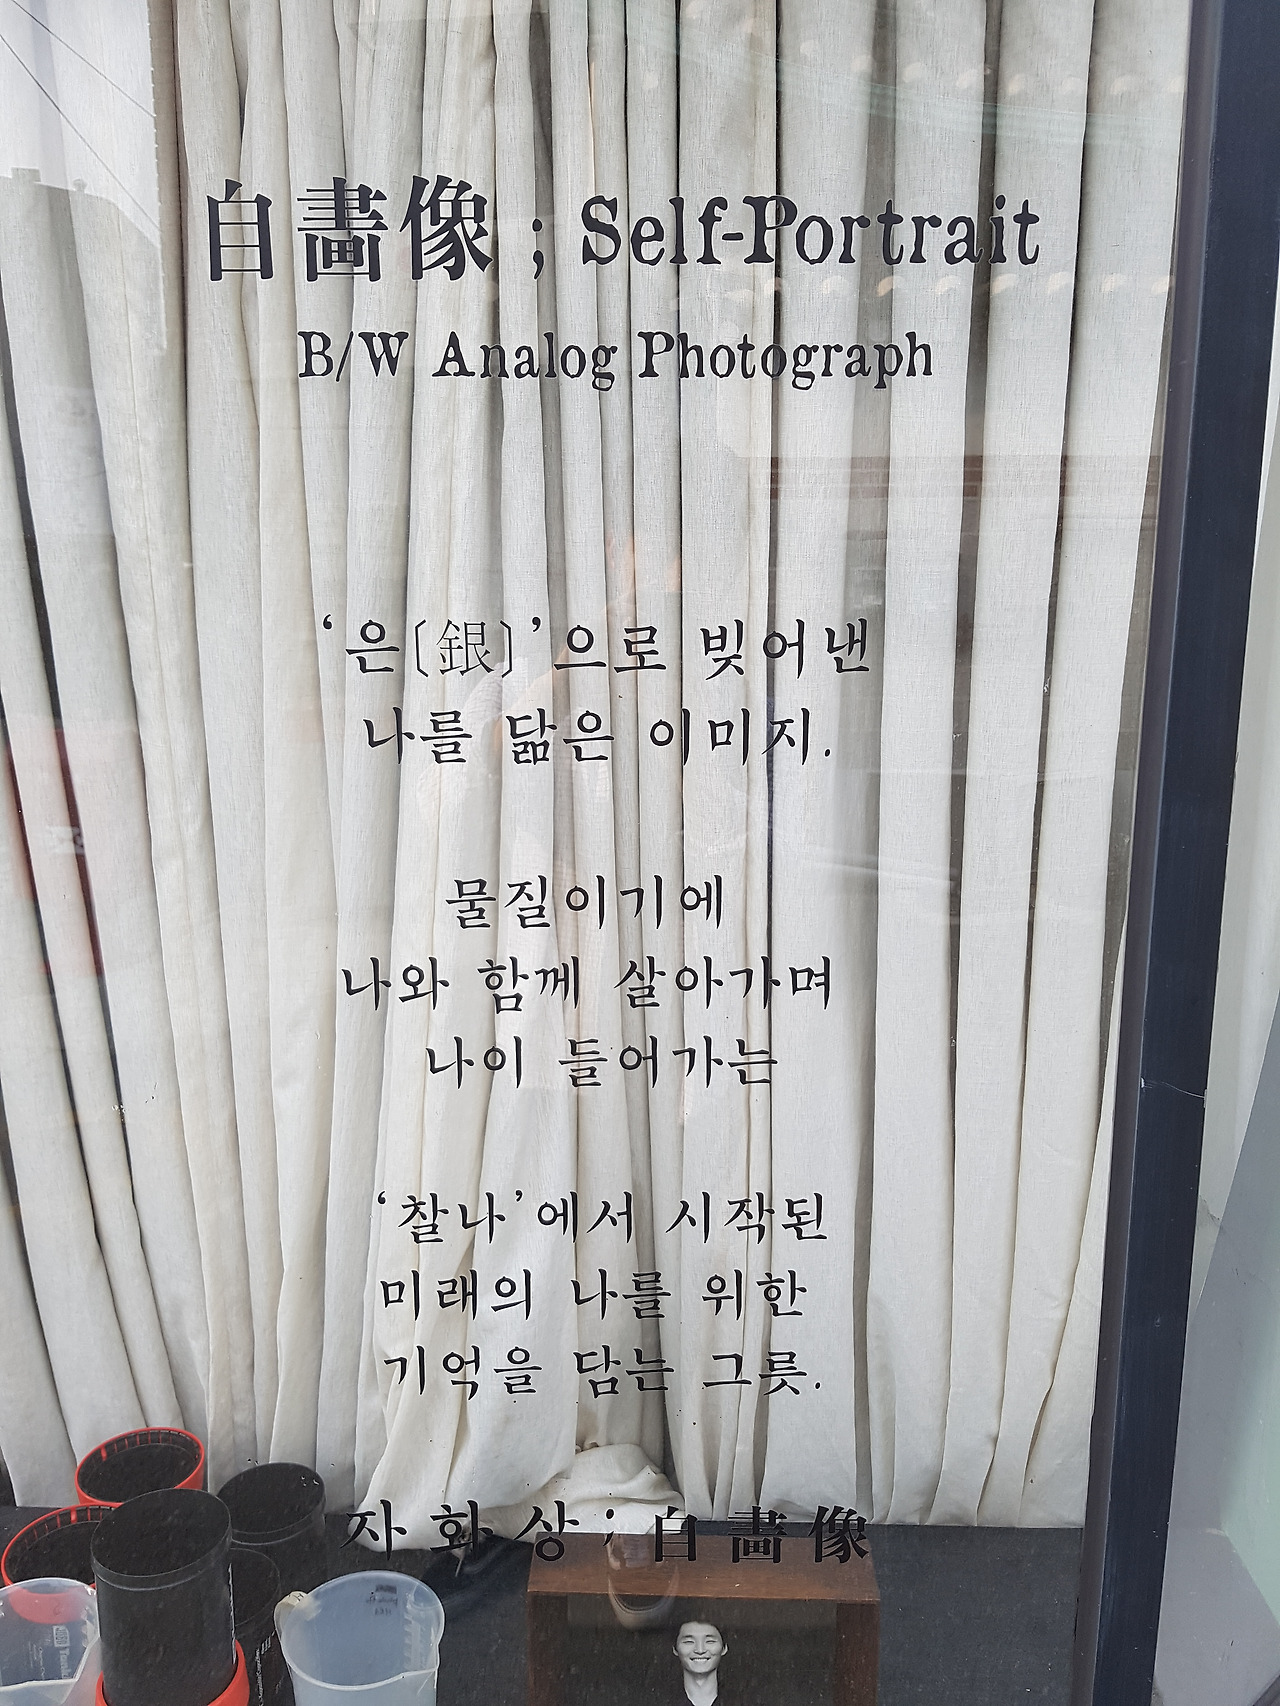 自畫像 ; Self-Portrait
B/W Analog Photograph
‘은〔銀〕’으로 빚어낸
나를 닮은 이미지.
물질이기에
나와 함께 살아가며
나이 들어가는
‘찰나’에서 시작된
미래의 나를 위한
기억을 담는 그릇.
자화상 ; 自畫像